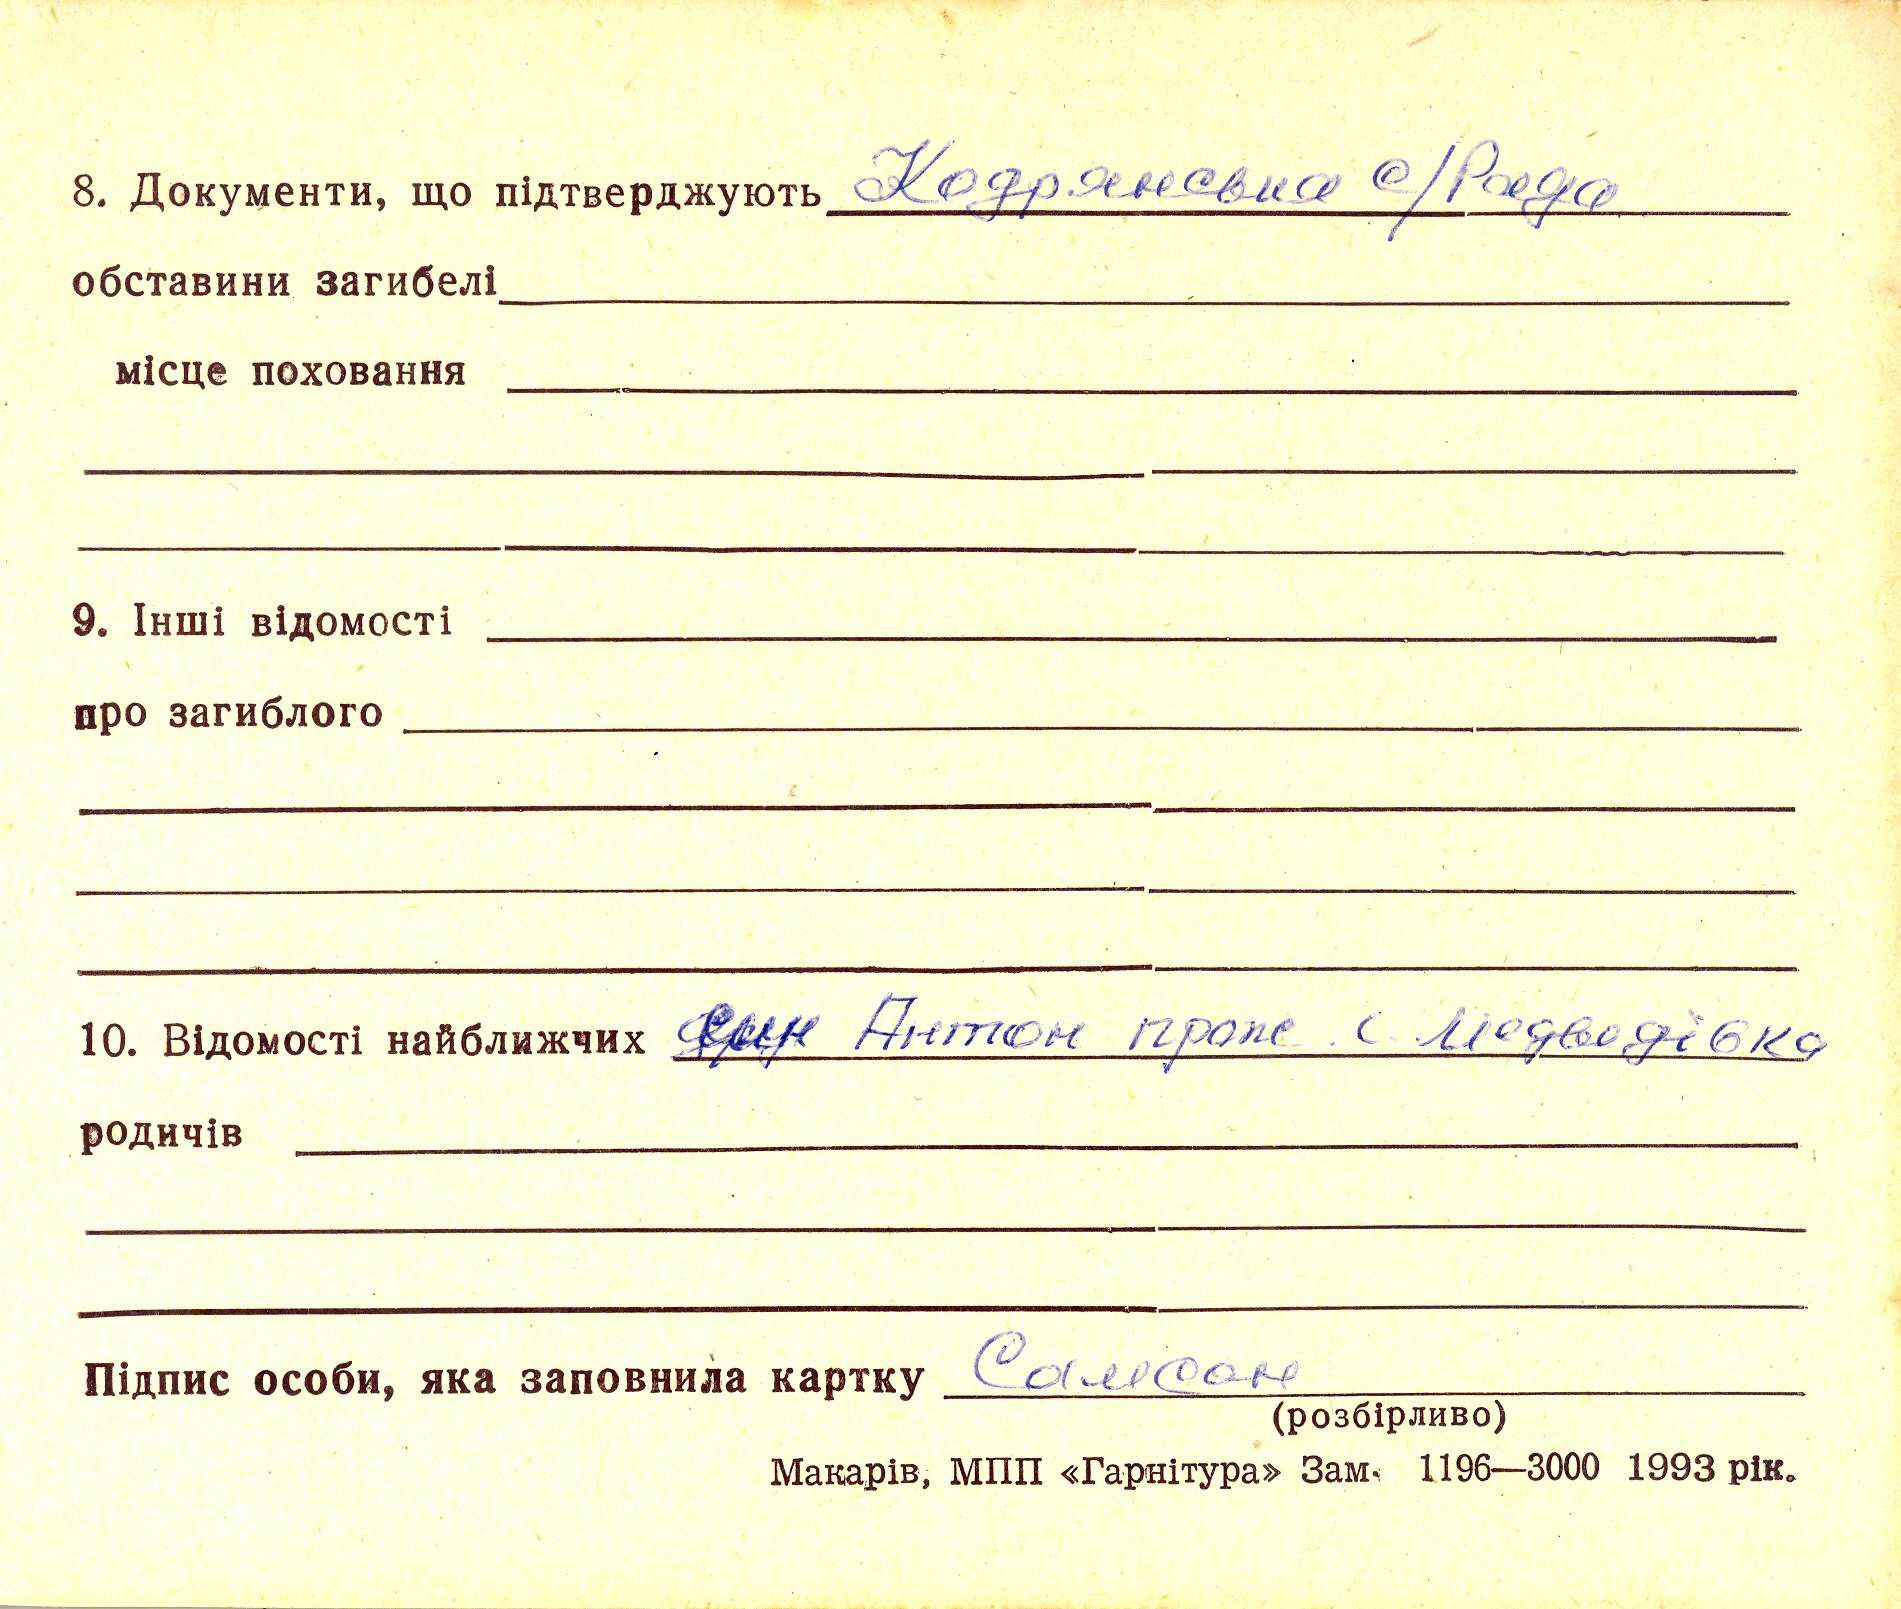 8. Документи, що підтверджують Кодрянська с/Рада
обставини загибелі
місце поховання
9. Інші відомості
про загиблого
10. Відомості найближчих син Антон прож с. Медведівка
родичів
Підпис особи, яка заповнила картку Самсон
(розбірливо)
Макарів, МПП «Гарнітура» Зам. 1196—3000 1993 рік.